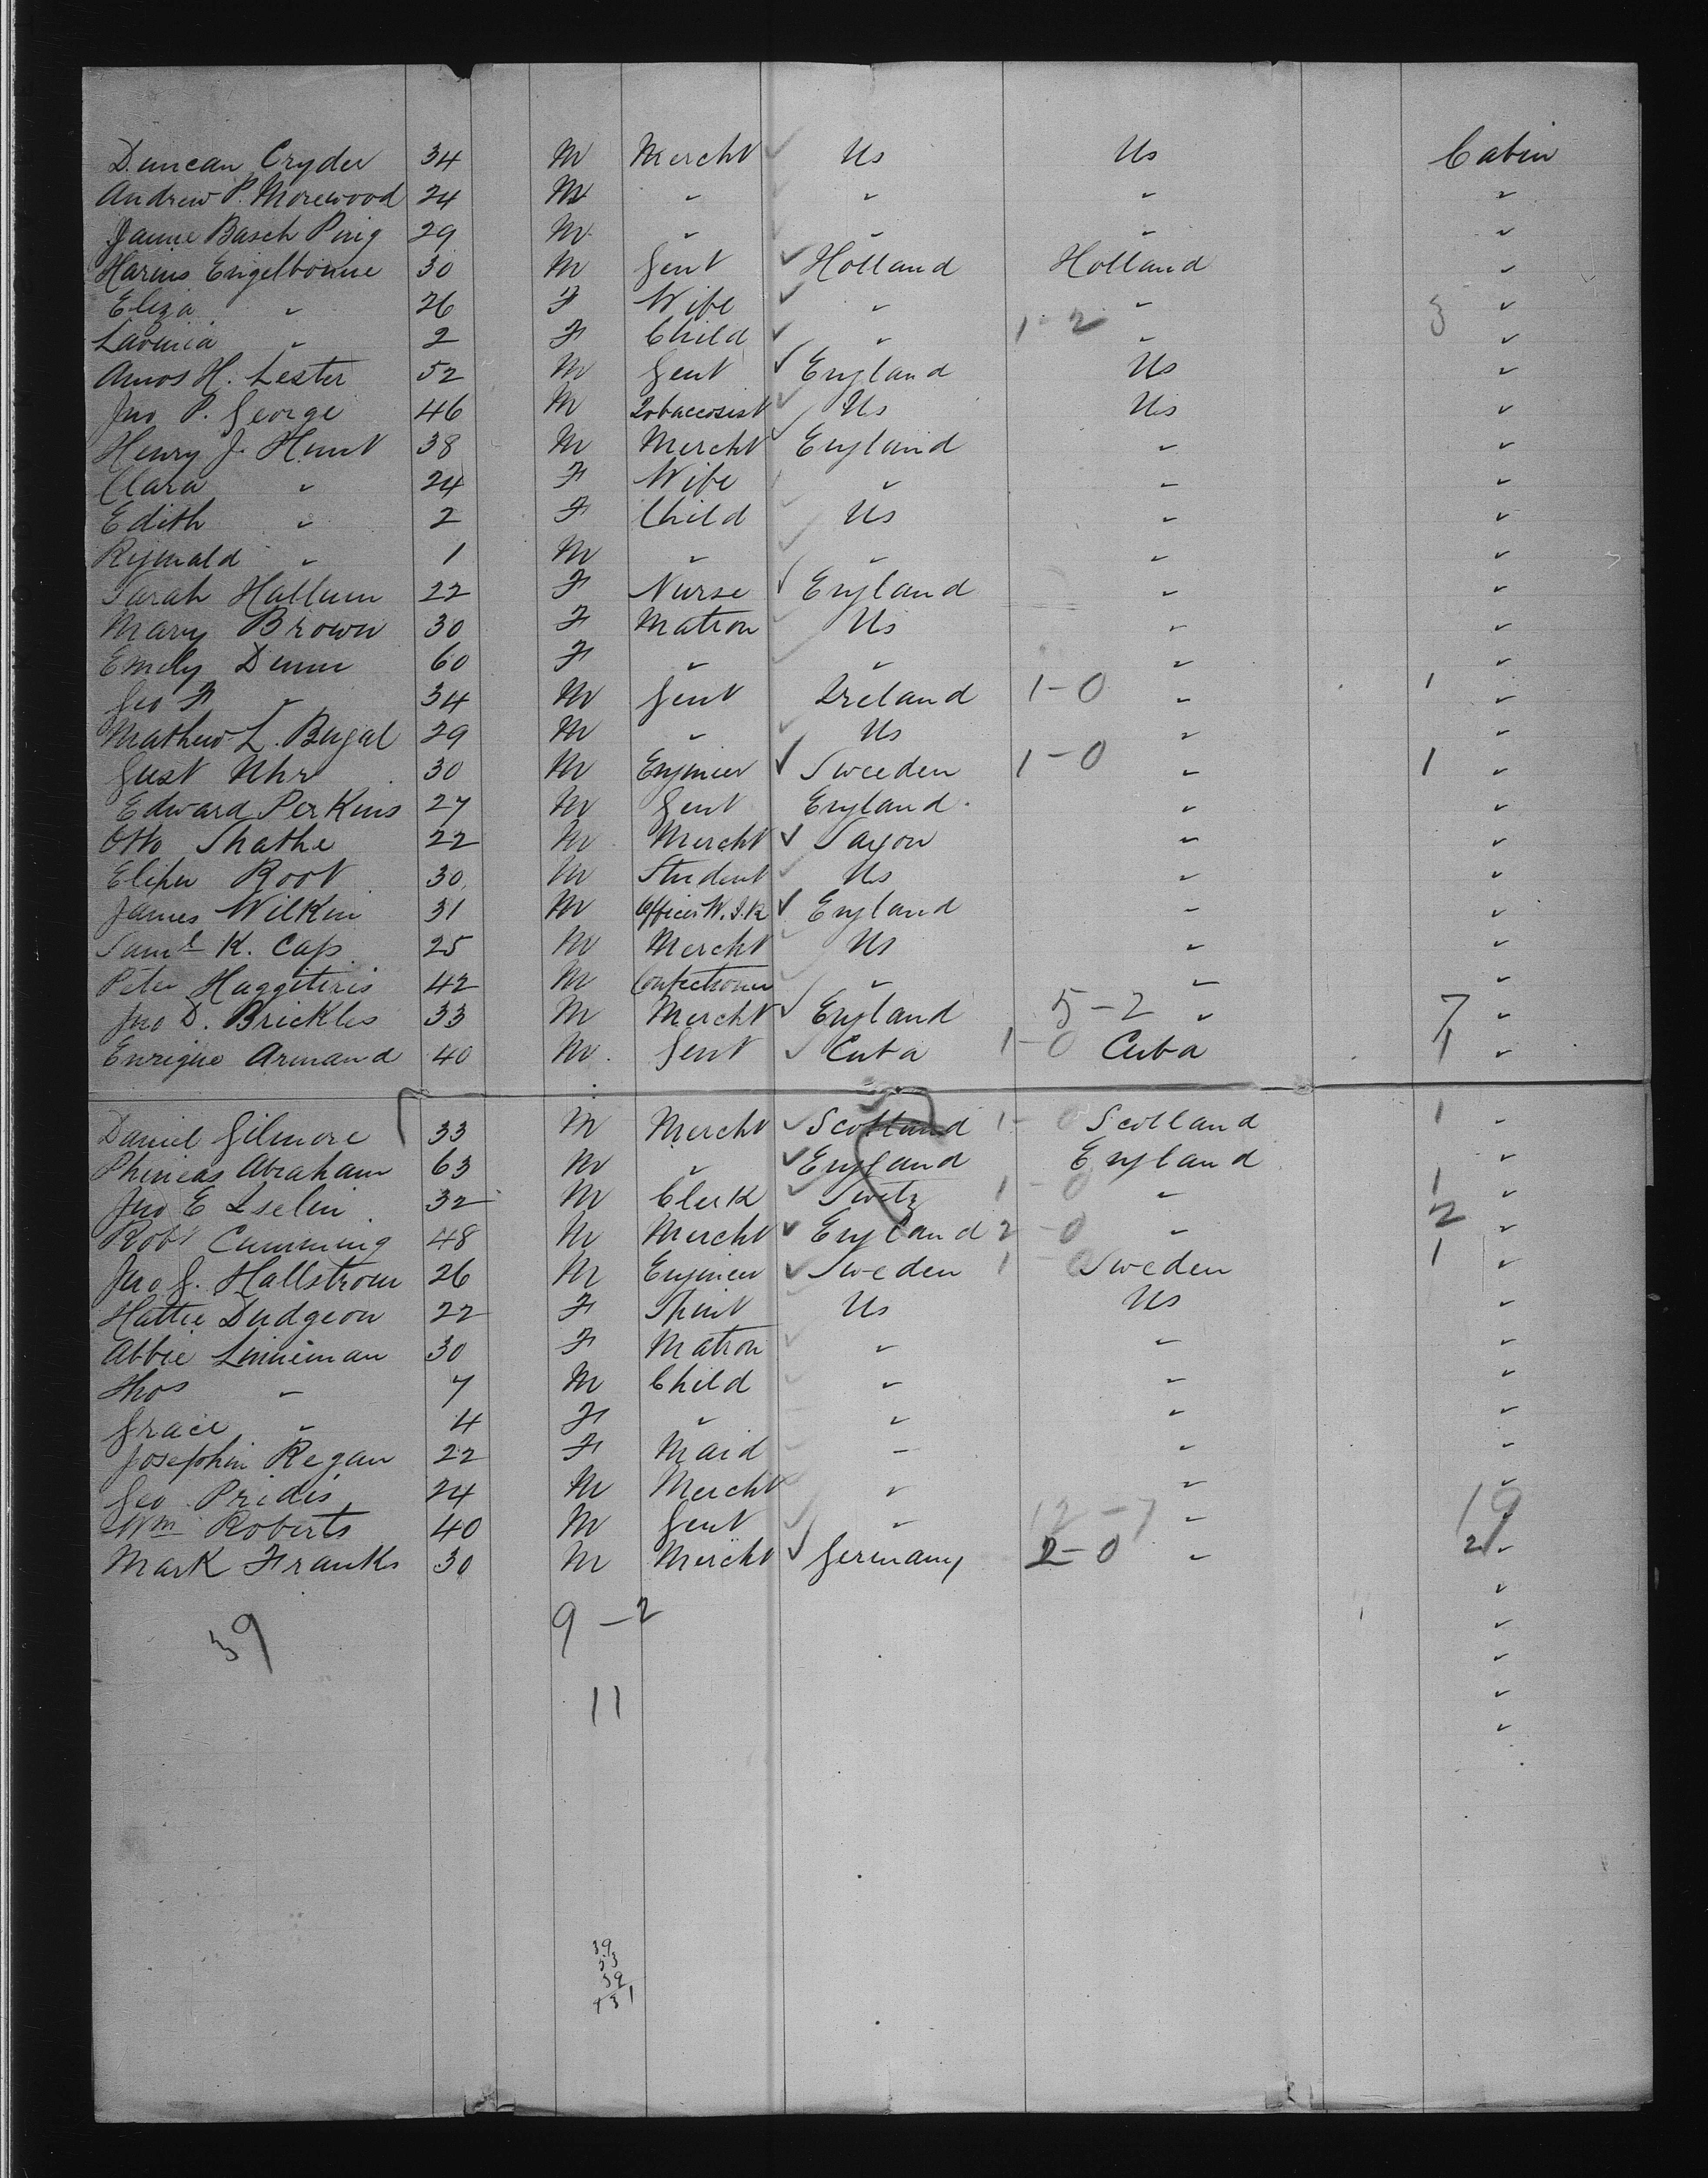 Duncan Cryder 34 M Mercht Us Us Cabin
Andrew P. Morewood 24 M " " " "
Basch 29 M " " " "
Engelbonne 30 M Gent Holland Holland "
Eliza " 26 F Wife " " 3 "
Lavinia " 2 F Child " 1-2 " "
Amos H. Lester 52 M Gent England Us "
Jno P. George 46 M Tobacconist Us Us "
Henry J. Hunt 38 M Mercht England " "
Clara " 24 F Wife " " "
Edith " 2 F Child Us " "
Reginald " 1 M " " " "
Sarah Hallum 22 F Nurse England " "
Mary Brown 30 F Matron Us " "
Emely Dunn 60 F " " " "
Geo F " 34 M Gent Ireland 1-0 " 1 "
Mathew L. 29 M " Us " "
Gust Uhr 30 M Engineer Sweeden 1-0 " 1 "
Edward Perkins 27 M Gent England " "
Otto 22 M Mercht Saxon " "
Root 30 M Student Us " "
James Wilkin 31 M Officer W.I.R England " "
Saml K. 25 M Mercht Us " "
Peter 42 M Confectioner " " "
Jno D. Brickles 33 M Mercht England 5-2 " 7 "
Enrique Armand 40 M Gent Cuba 1-0 Cuba 1 "
Daniel Gilmore 33 M Mercht Scotland 1-0 Scotland 1 "
Phineas Abraham 63 M " England England "
Jno E Iselin 32 M Clerk Switz 1-0 " 1 "
Robt Cumming 48 M Mercht England 2-0 " 2 "
Jno G. Hallstrom 26 M Engineer Sweden 1-0 Sweden 1 "
Hattie Dudgeon 22 F Spinst Us Us "
Abbie Linnieman 30 F Matron " " "
Thos " 7 M Child " " "
Grace " 4 F " " " "
Josephin Regan 22 F Maid " " "
Geo Prides 24 M Mercht " " "
Wm Roberts 40 M Gent " 12-7 " 19 "
Mark Franks 30 M Mercht Germany 2-0 " 2 "
"
39 9-2 "
"
11 "
"
39
53
39
131